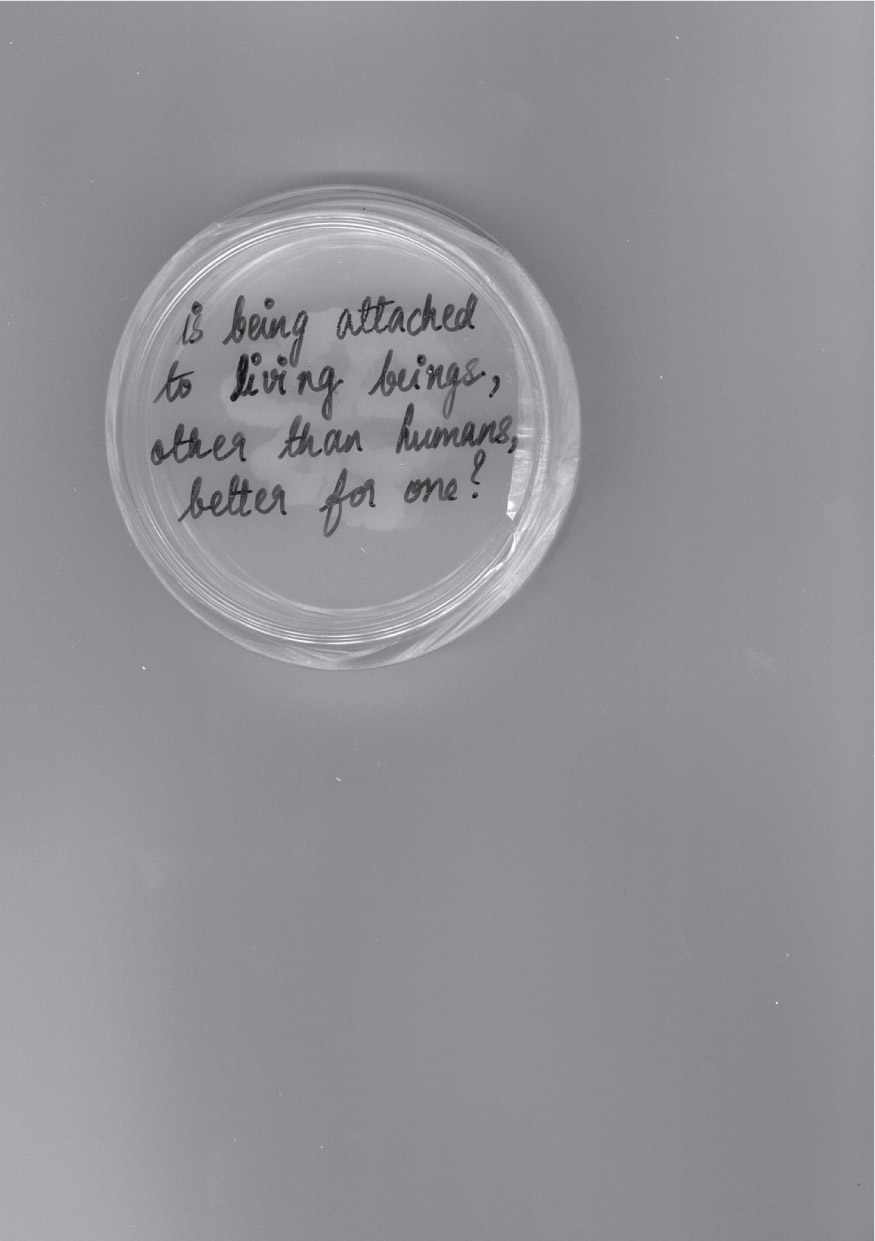 is being attached
to living beings,
other than humans,
better for one?